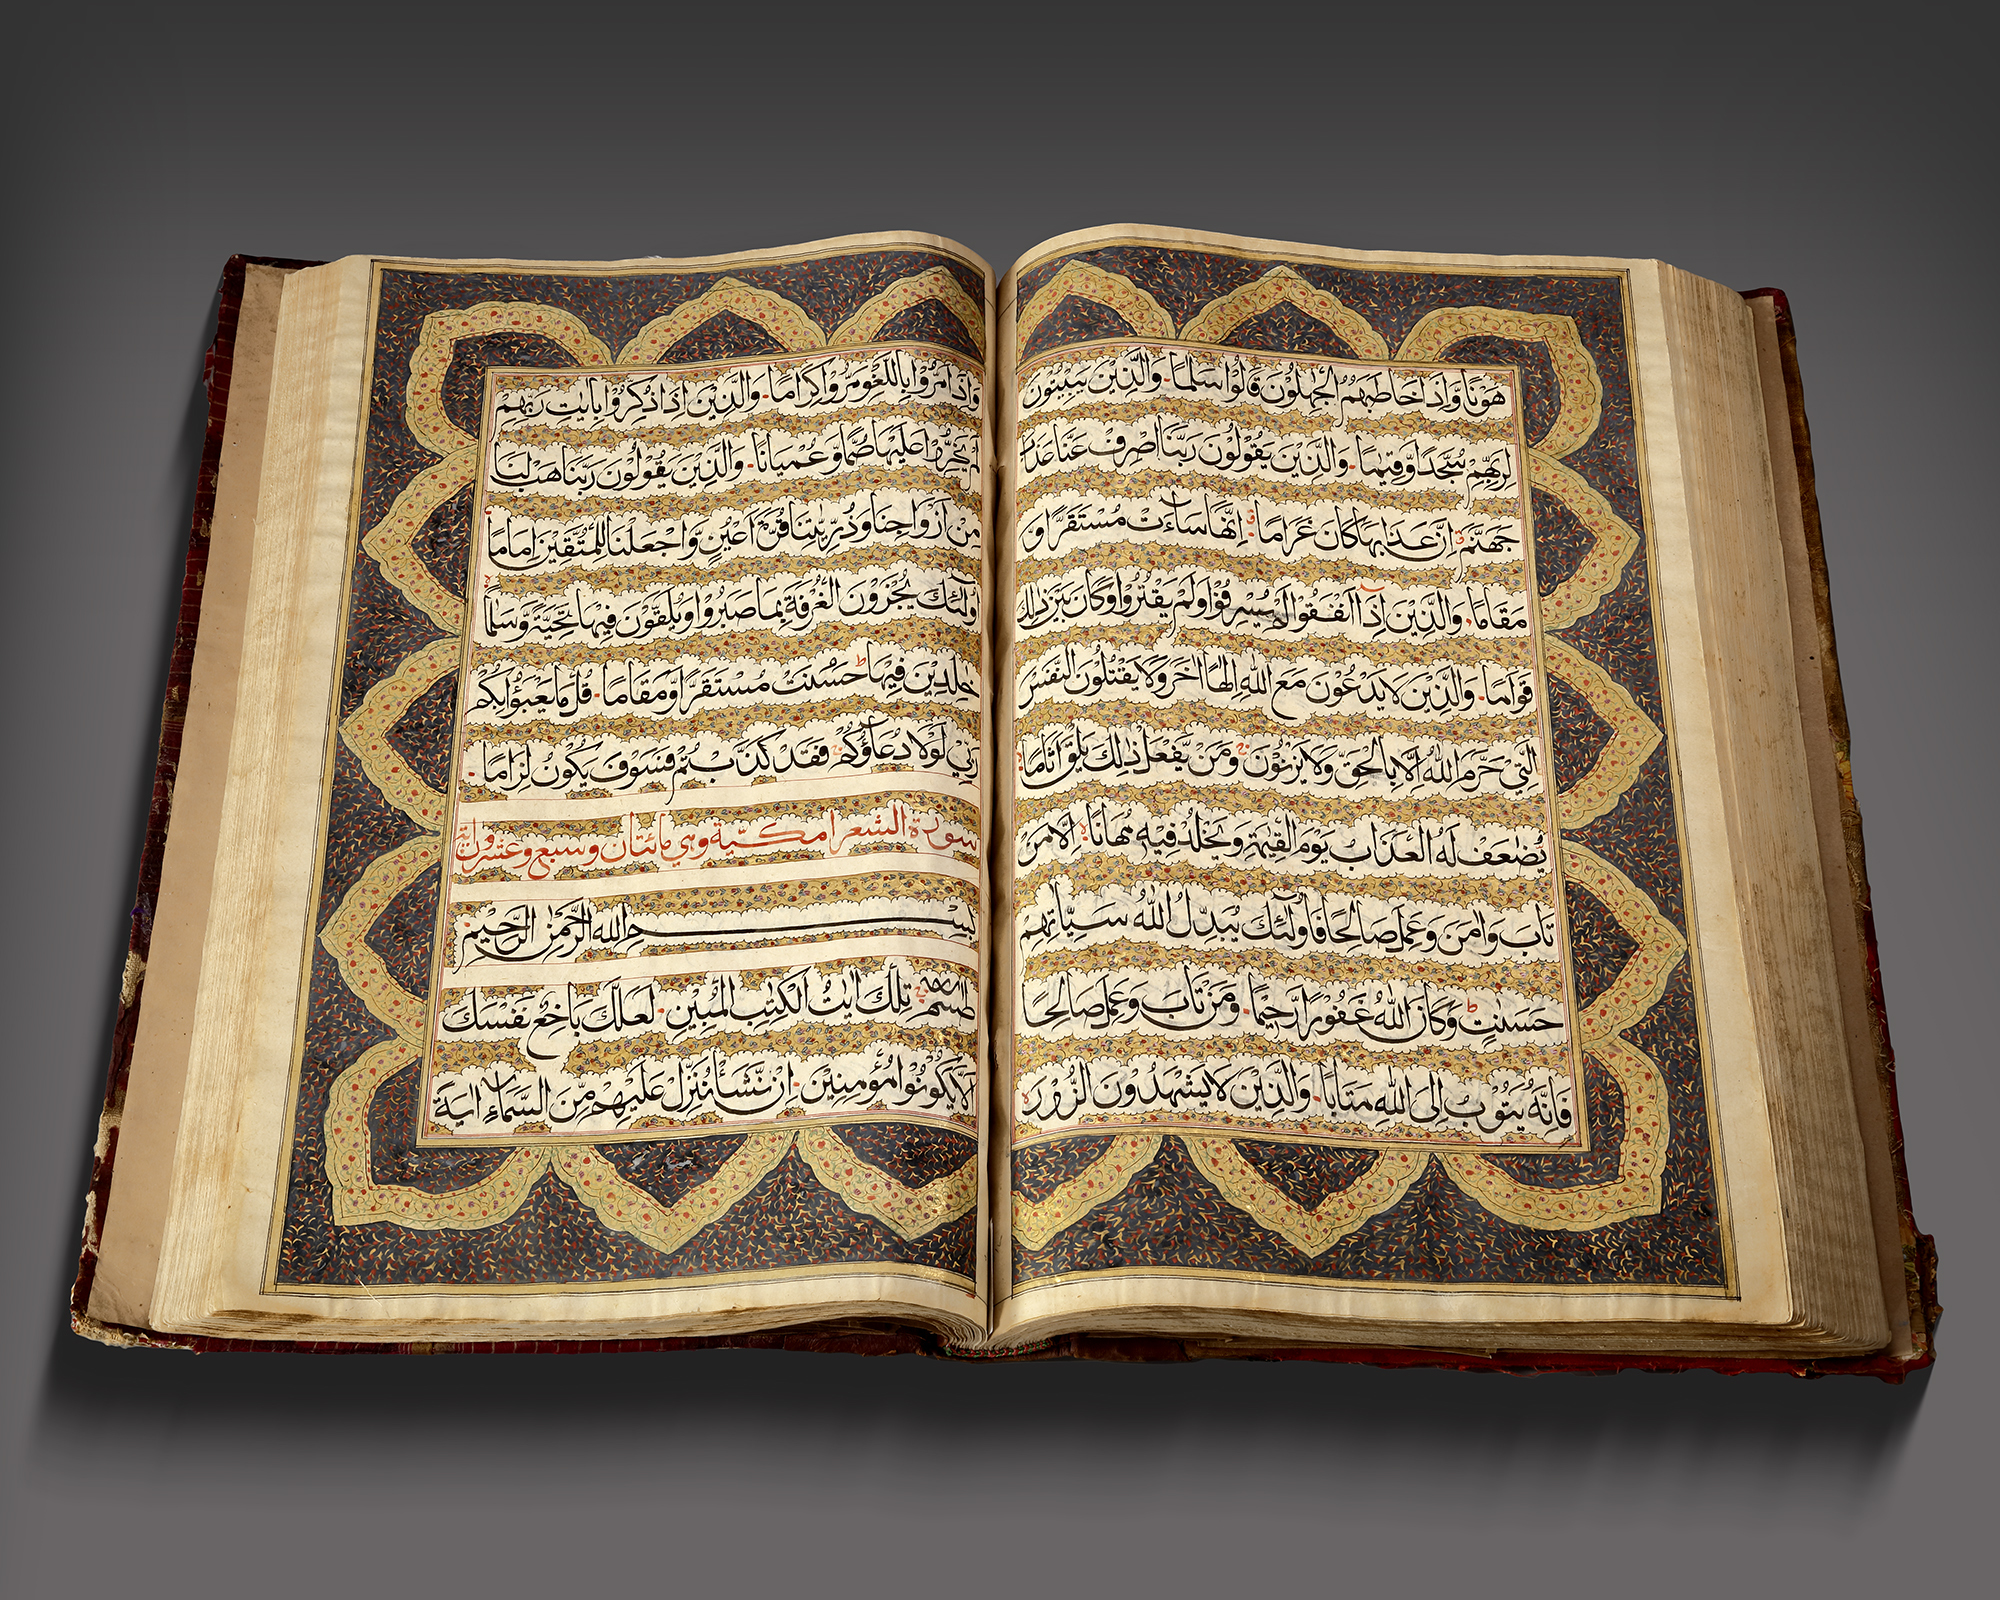 هَوْنًا وَّاِذَا خَاطَبَهُمُ الْجٰهِلُوْنَ قَالُوْا سَلٰمًا وَالَّذِيْنَ يَبِيْتُوْنَ
لِرَبِّهِمْ سُجَّدًا وَّقِيٰمًا وَالَّذِيْنَ يَقُوْلُوْنَ رَبَّنَا اصْرِفْ عَنَّا عَذَابَ
جَهَنَّمَ اِنَّ عَذَابَهَا كَانَ غَرَامًا اِنَّهَا سَاءَتْ مُسْتَقَرًّا وَّ
مُقَامًا وَالَّذِيْنَ اِذَا اَنْفَقُوْا لَمْ يُسْرِفُوْا وَلَمْ يَقْتُرُوْا وَكَانَ بَيْنَ ذٰلِكَ
قَوَامًا وَالَّذِيْنَ لَا يَدْعُوْنَ مَعَ اللّٰهِ اِلٰهًا اٰخَرَ وَلَا يَقْتُلُوْنَ النَّفْسَ
الَّتِيْ حَرَّمَ اللّٰهُ اِلَّا بِالْحَقِّ وَلَا يَزْنُوْنَ وَمَنْ يَّفْعَلْ ذٰلِكَ يَلْقَ اَثَامًا
يُّضٰعَفْ لَهُ الْعَذَابُ يَوْمَ الْقِيٰمَةِ وَيَخْلُدْ فِيْهِ مُهَانًا اِلَّا مَنْ
تَابَ وَاٰمَنَ وَعَمِلَ صَالِحًا فَاُولٰٓئِكَ يُبَدِّلُ اللّٰهُ سَيِّاٰتِهِمْ
حَسَنٰتٍ وَكَانَ اللّٰهُ غَفُوْرًا رَّحِيْمًا وَمَنْ تَابَ وَعَمِلَ صَالِحًا
فَاِنَّهٗ يَتُوْبُ اِلَى اللّٰهِ مَتَابًا وَالَّذِيْنَ لَا يَشْهَدُوْنَ الزُّوْرَ
وَاِذَا مَرُّوْا بِاللَّغْوِ مَرُّوْا كِرَامًا وَالَّذِيْنَ اِذَا ذُكِّرُوْا بِاٰيٰتِ رَبِّهِمْ
لَمْ يَخِرُّوْا عَلَيْهَا صُمًّا وَّعُمْيَانًا وَالَّذِيْنَ يَقُوْلُوْنَ رَبَّنَا هَبْ لَنَا
مِنْ اَزْوَاجِنَا وَذُرِّيّٰتِنَا قُرَّةَ اَعْيُنٍ وَّاجْعَلْنَا لِلْمُتَّقِيْنَ اِمَامًا
اُولٰٓئِكَ يُجْزَوْنَ الْغُرْفَةَ بِمَا صَبَرُوْا وَيُلَقَّوْنَ فِيْهَا تَحِيَّةً وَّسَلٰمًا
خٰلِدِيْنَ فِيْهَا حَسُنَتْ مُسْتَقَرًّا وَّمُقَامًا قُلْ مَا يَعْبَؤُا بِكُمْ
رَبِّيْ لَوْلَا دُعَاؤُكُمْ فَقَدْ كَذَّبْتُمْ فَسَوْفَ يَكُوْنُ لِزَامًا
سورة الشعرا مكية وهي مائتان وسبع وعشرون اية
بِسْمِ اللّٰهِ الرَّحْمٰنِ الرَّحِيْمِ
طٰسٓمّٓ تِلْكَ اٰيٰتُ الْكِتٰبِ الْمُبِيْنِ لَعَلَّكَ بَاخِعٌ نَّفْسَكَ
اَلَّا يَكُوْنُوْا مُؤْمِنِيْنَ اِنْ نَّشَأْ نُنَزِّلْ عَلَيْهِمْ مِّنَ السَّمَاءِ اٰيَةً